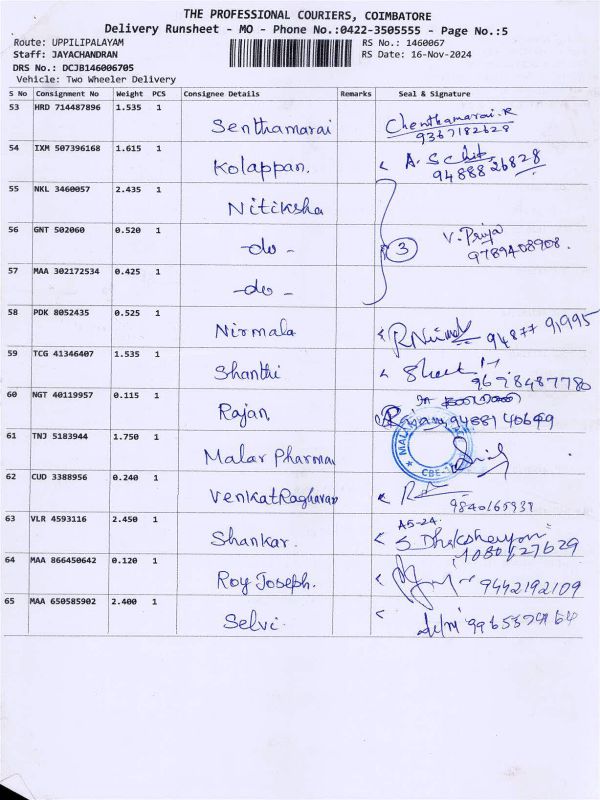 THE PROFESSIONAL COURIERS, COIMBATORE
Delivery Runsheet - MO - Phone No.:0422-3505555 - Page No.:5
Route: UPPILIPALAYAM RS No.: 1460067
Staff: JAYACHANDRAN RS Date: 16-Nov-2024
DRS No.: DCJB146006705
Vehicle: Two Wheeler Delivery
S No Consignment No Weight PCS Consignee Details Remarks Seal & Signature
53 HRD 714487896 1.535 1 Senthamarai Chenthamarai.R
9367182628
54 IXM 507396168 1.615 1 Kolappan.
9488826828
55 NKL 3460057 2.435 1 Nitiksha
56 GNT 502060 0.520 1 -do- 3 V. Priya
9789408908.
57 MAA 302172534 0.425 1 -do-
58 PDK 8052435 0.525 1 Nirmala 94877 91995
59 TCG 41346407 1.535 1 Shanthi
9678487780
60 NGT 40119957 0.115 1 Rajan
61 TNJ 5183944 1.750 1 Malar Pharma
CBE
62 CUD 3388956 0.240 1 VenkatRaghavan
63 VLR 4593116 2.450 1 Shankar.
64 MAA 866450642 0.120 1 Roy Joseph. 9442192109
65 MAA 650585902 2.400 1 Selvi.